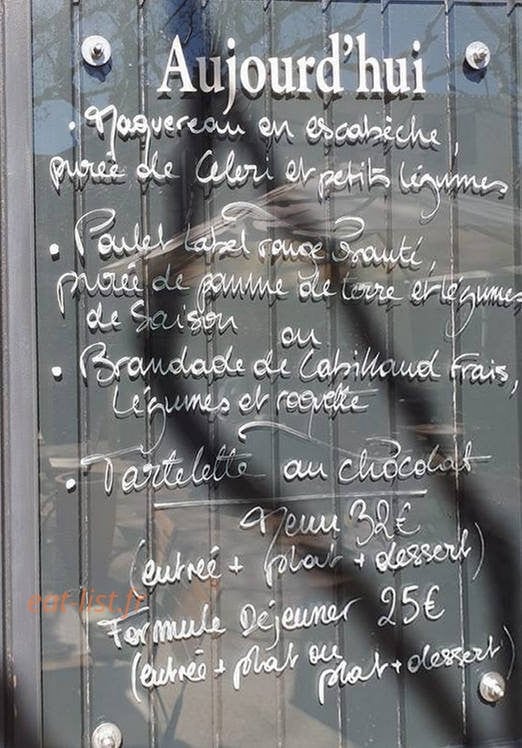 Aujourd'hui
• Maquereau en escabèche,
purée de Céleri et petits légumes
• Poulet Label rouge Sauté,
purée de pomme de terre et légumes
de Saison
ou
• Brandade de Cabillaud Frais,
légumes et roquette
• Tartelette au chocolat
Menu 32€
(entrée + plat + dessert)
eat-list.fr
Formule Déjeuner 25€
(entrée + plat ou
plat + dessert)